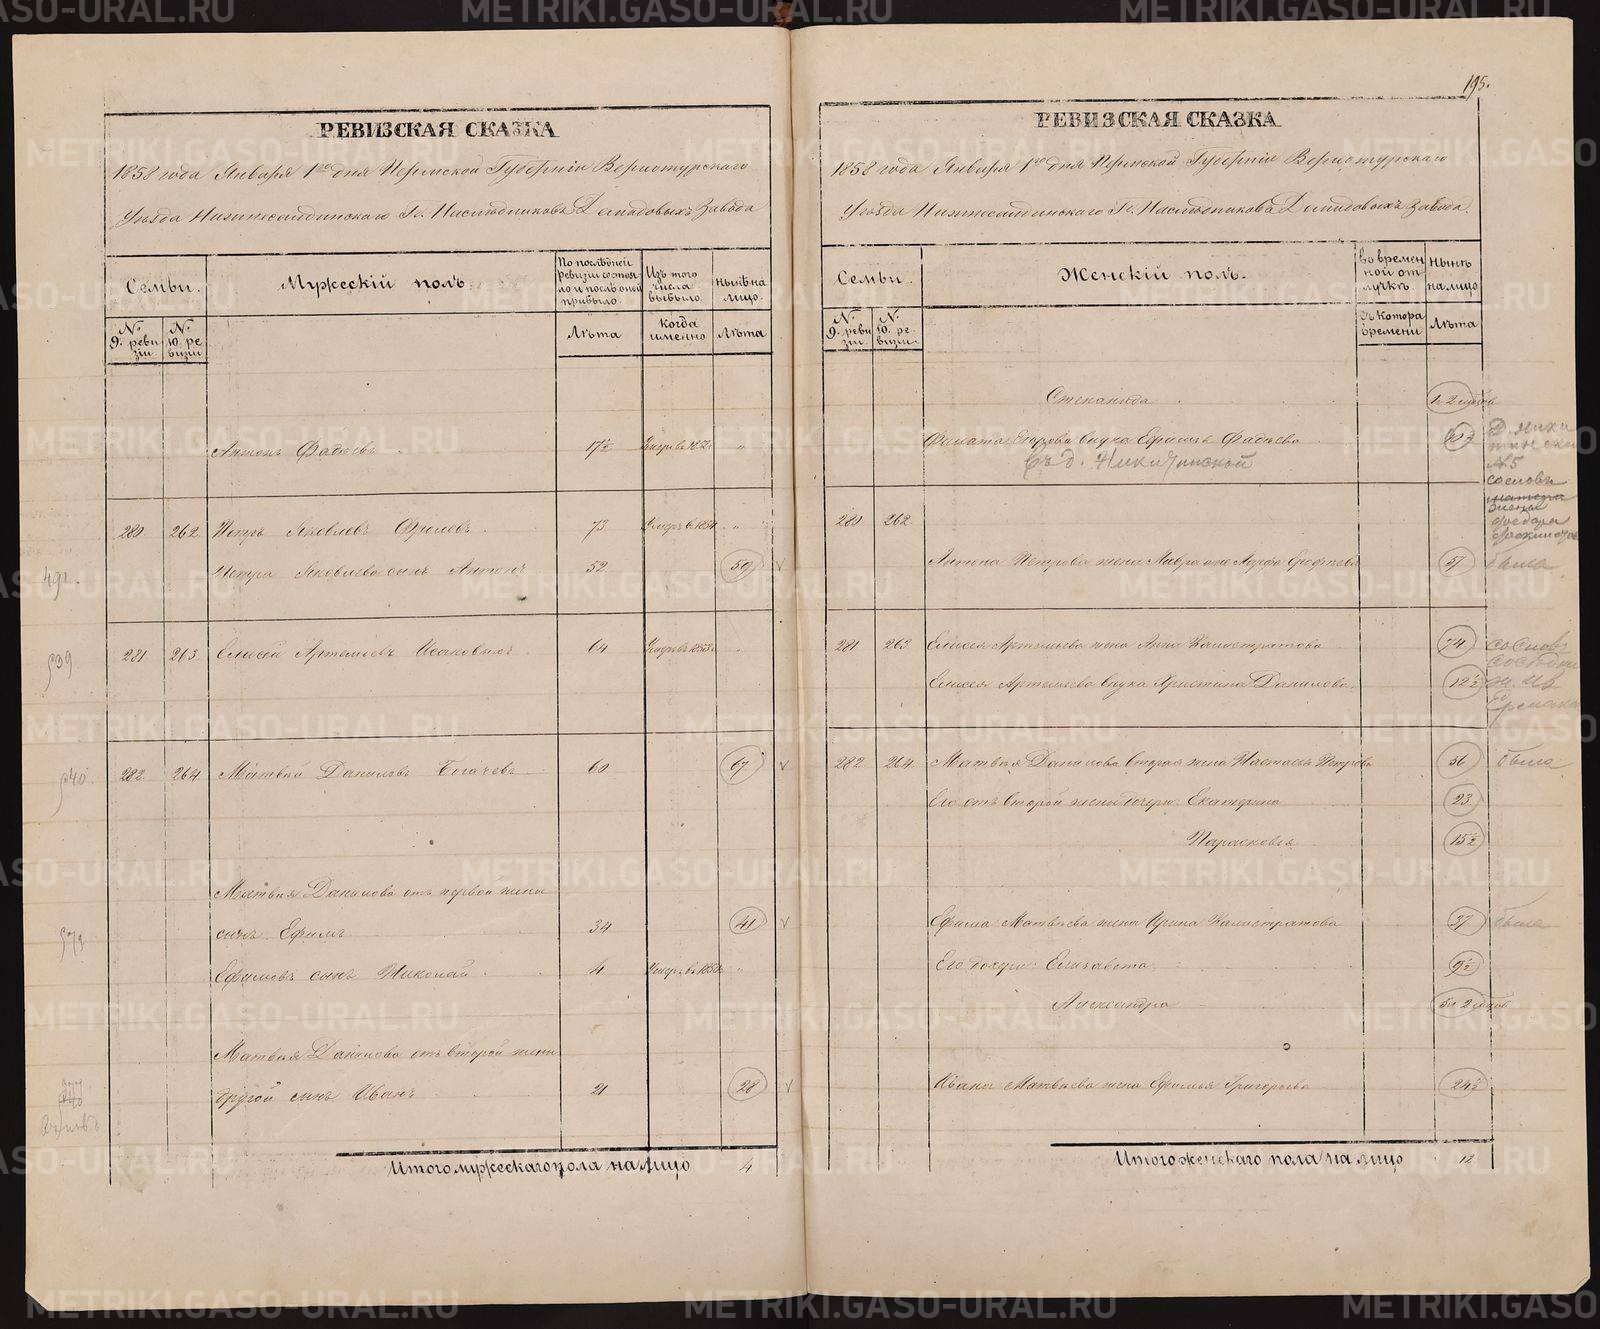 195.
РЕВИЗСКАЯ СКАЗКА
1858 года Января 1го дня Пермской Губерніи Верхотурскаго
Уѣзда Нижнесалдинскаго Гг. Наслѣдниковъ Демидовыхъ Завода
Семьи.
Мужескій полъ.
По послѣдней ревизіи состояло и послѣ оной прибыло.
Изъ того числа выбыло.
Нынѣ на лицо.
№ 9. ревизіи
№ 10. ревизіи
Лѣта
Когда именно
Лѣта
Антонъ Фадѣевъ 17½ "
280 262 Петръ Яковлевъ Фролевъ 73 Умеръ въ 1854 "
491. Петра Яковлева сынъ Антонъ 52 59 v
539 281 263 Елисей Артемьевъ Исаковыхъ 64
540 282 264 Матвѣй Даниловъ Богачевъ 60 67 v
Матвѣя Данилова отъ первой жены
сынъ Ефимъ 34 41 v
Ефимовъ сынъ Николай 4 "
Матвѣя Данилова отъ второй жены
другой сынъ Иванъ 21 28 v
Итого мужескаго пола на лицо 4
РЕВИЗСКАЯ СКАЗКА
1858 года Января 1го дня Пермской Губерніи Верхотурскаго
Уѣзда Нижнесалдинскаго Гг. Наслѣдниковъ Демидовыхъ Завода.
Семьи.
Женскій полъ.
Во временной отлучкѣ.
Нынѣ на лицо
№ 9. ревизіи
№ 10. ревизіи.
Съ котора времени
Лѣта
Степанида 1 и 2 мѣсяц
Егорова внука Ефима Фадѣева
въ д. Никитинской
280 262
Антона Петрова жена Мавра Ерофѣева 57
281 263 Елисея Артемьева жена Анна Калистратова 74
Елисея Артемьева внука Христина Данилова. 12½
282 264 Матвѣя Данилова вторая жена Настасья Петрова 56
Его отъ второй жены дочери: Екатерина 23
Парасковья 15½
Ефима Матвѣева жена Ирина Калистратова 37
Его дочери: Елизавета 9½
Александра 5 и 2 мѣсяц
Ивана Матвѣева жена Ефимья Григорьева 24½
Итого женскаго пола на лицо 12
METRIKI.GASO-URAL.RU